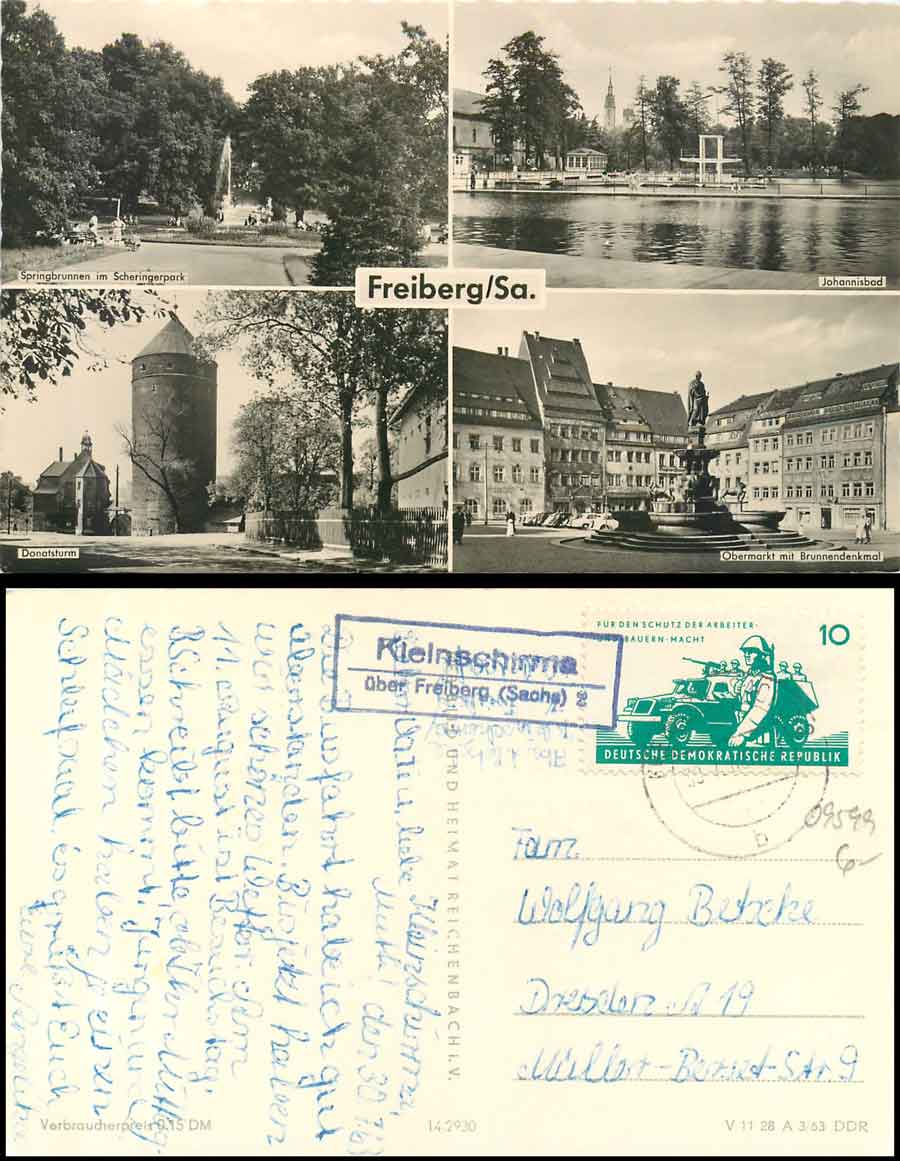 Springbrunnen im Scheringerpark
Johannisbad
Freiberg/Sa.
Donatsturm
Obermarkt mit Brunnendenkmal
Kleinschirma
über Freiberg (Sachs) 2
FÜR DEN SCHUTZ DER ARBEITER-
UND-BAUERN-MACHT
10
DEUTSCHE DEMOKRATISCHE REPUBLIK
b
09599
6,-
Kleinschirma,
den 30.7.63
liebe
habe ich gut
überstanden. Bis jetzt haben
wir schönes Wetter. Am
11. August ist Besuchstag.
Schreibt bitte, ob Ihr
essen kommt. Jungs und
Mädchen haben je einen
Schlafsaal. Es grüßt Euch
Eure
UND HEIMAT REICHENBACH I. V.
Fam.
Wolfgang Betscke
Dresden A 19
Müller-Berset-Str. 9
Verbraucherpreis 0.15 DM
14 2930
V 11 28 A 3/63 DDR